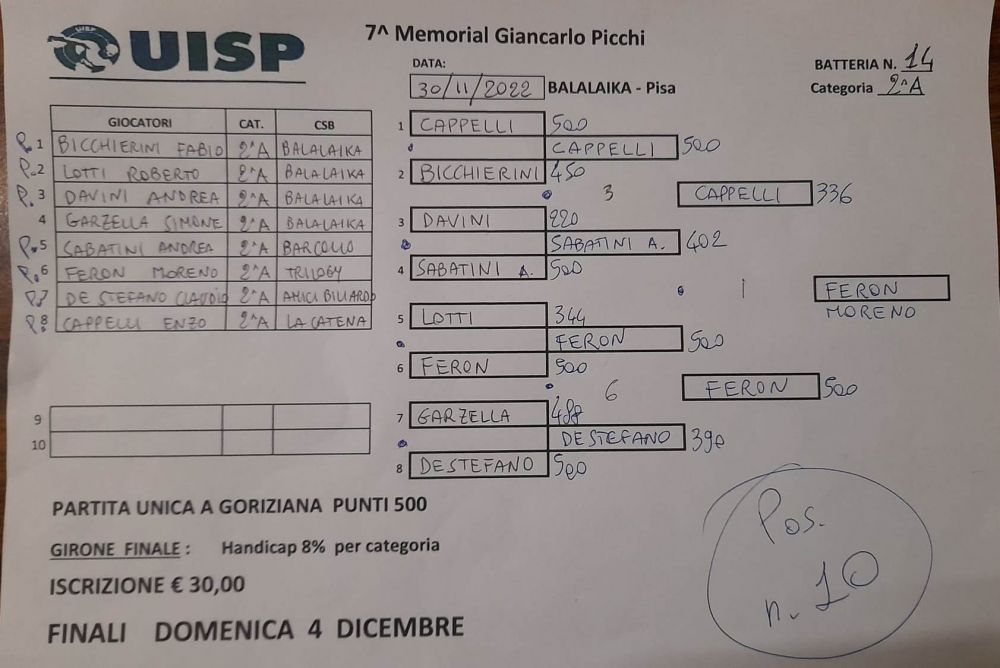 UISP
7^ Memorial Giancarlo Picchi
DATA:
30/11/2022 BALALAIKA - Pisa
BATTERIA N. 14
Categoria 2^A
GIOCATORI CAT. CSB
P. 1 BICCHIERINI FABIO 2^A BALALAIKA
P. 2 LOTTI ROBERTO 2^A BALALAIKA
P. 3 DAVINI ANDREA 2^A BALALAIKA
4 GARZELLA SIMONE 2^A BALALAIKA
P. 5 SABATINI ANDREA 2^A BARCOLLO
P. 6 FERON MORENO 2^A TRILOGY
P. 7 DE STEFANO CLAUDIO 2^A AMICI BILIARDO
P. 8 CAPPELLI ENZO 2^A LA CATENA
9
10
1 CAPPELLI 500
CAPPELLI 500
2 BICCHIERINI 450
3 CAPPELLI 336
3 DAVINI 220
SABATINI A. 402
4 SABATINI A. 500
1 FERON
MORENO
5 LOTTI 344
FERON 500
6 FERON 500
6 FERON 500
7 GARZELLA 488
DESTEFANO 390
8 DESTEFANO 500
PARTITA UNICA A GORIZIANA PUNTI 500
GIRONE FINALE : Handicap 8% per categoria
ISCRIZIONE € 30,00
FINALI DOMENICA 4 DICEMBRE
Pos.
n. 10